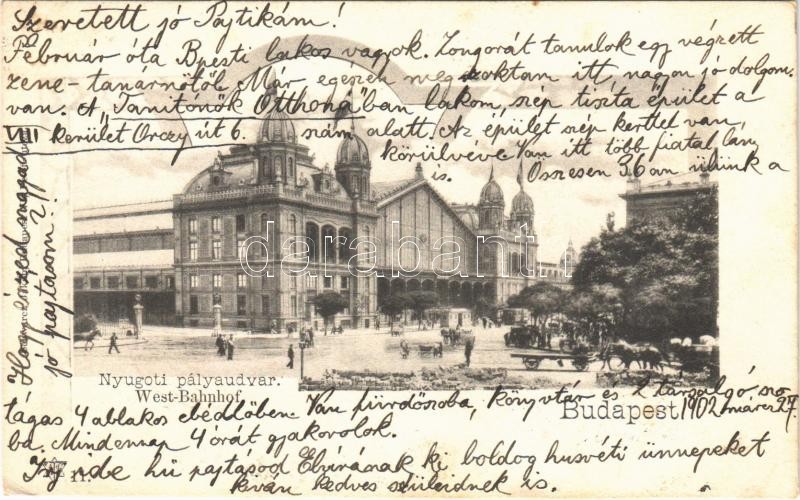 Szeretett jó Pajtikám!
Február óta Bpesti lakos vagyok. Zongorát tanulok egy végzett
zene-tanárnőtől. Már egészen megszoktam itt, nagyon jó dolgom
van. A "Tanítónők Otthoná"ban lakom, szép tiszta épület a
VIII kerület Orczy út 6. szám alatt. Az épület szép kerttel van
körülvéve. Van itt több fiatal lány
is. Összesen 36an ülünk a
Hogy érzed magad
jó pajtásom?!
darabanth.com
Nyugoti pályaudvar.
West-Bahnhof.
Budapest
1902 márc 27.
tágas 4 ablakos ebédlőben. Van fürdőszoba, könyvtár és 2 társalgó szo
ba. Mindennap 4 órát gyakorolok.
Írj ide hű pajtásod Elvirának ki boldog husvéti ünnepeket
kíván kedves szüleidnek is.
11.